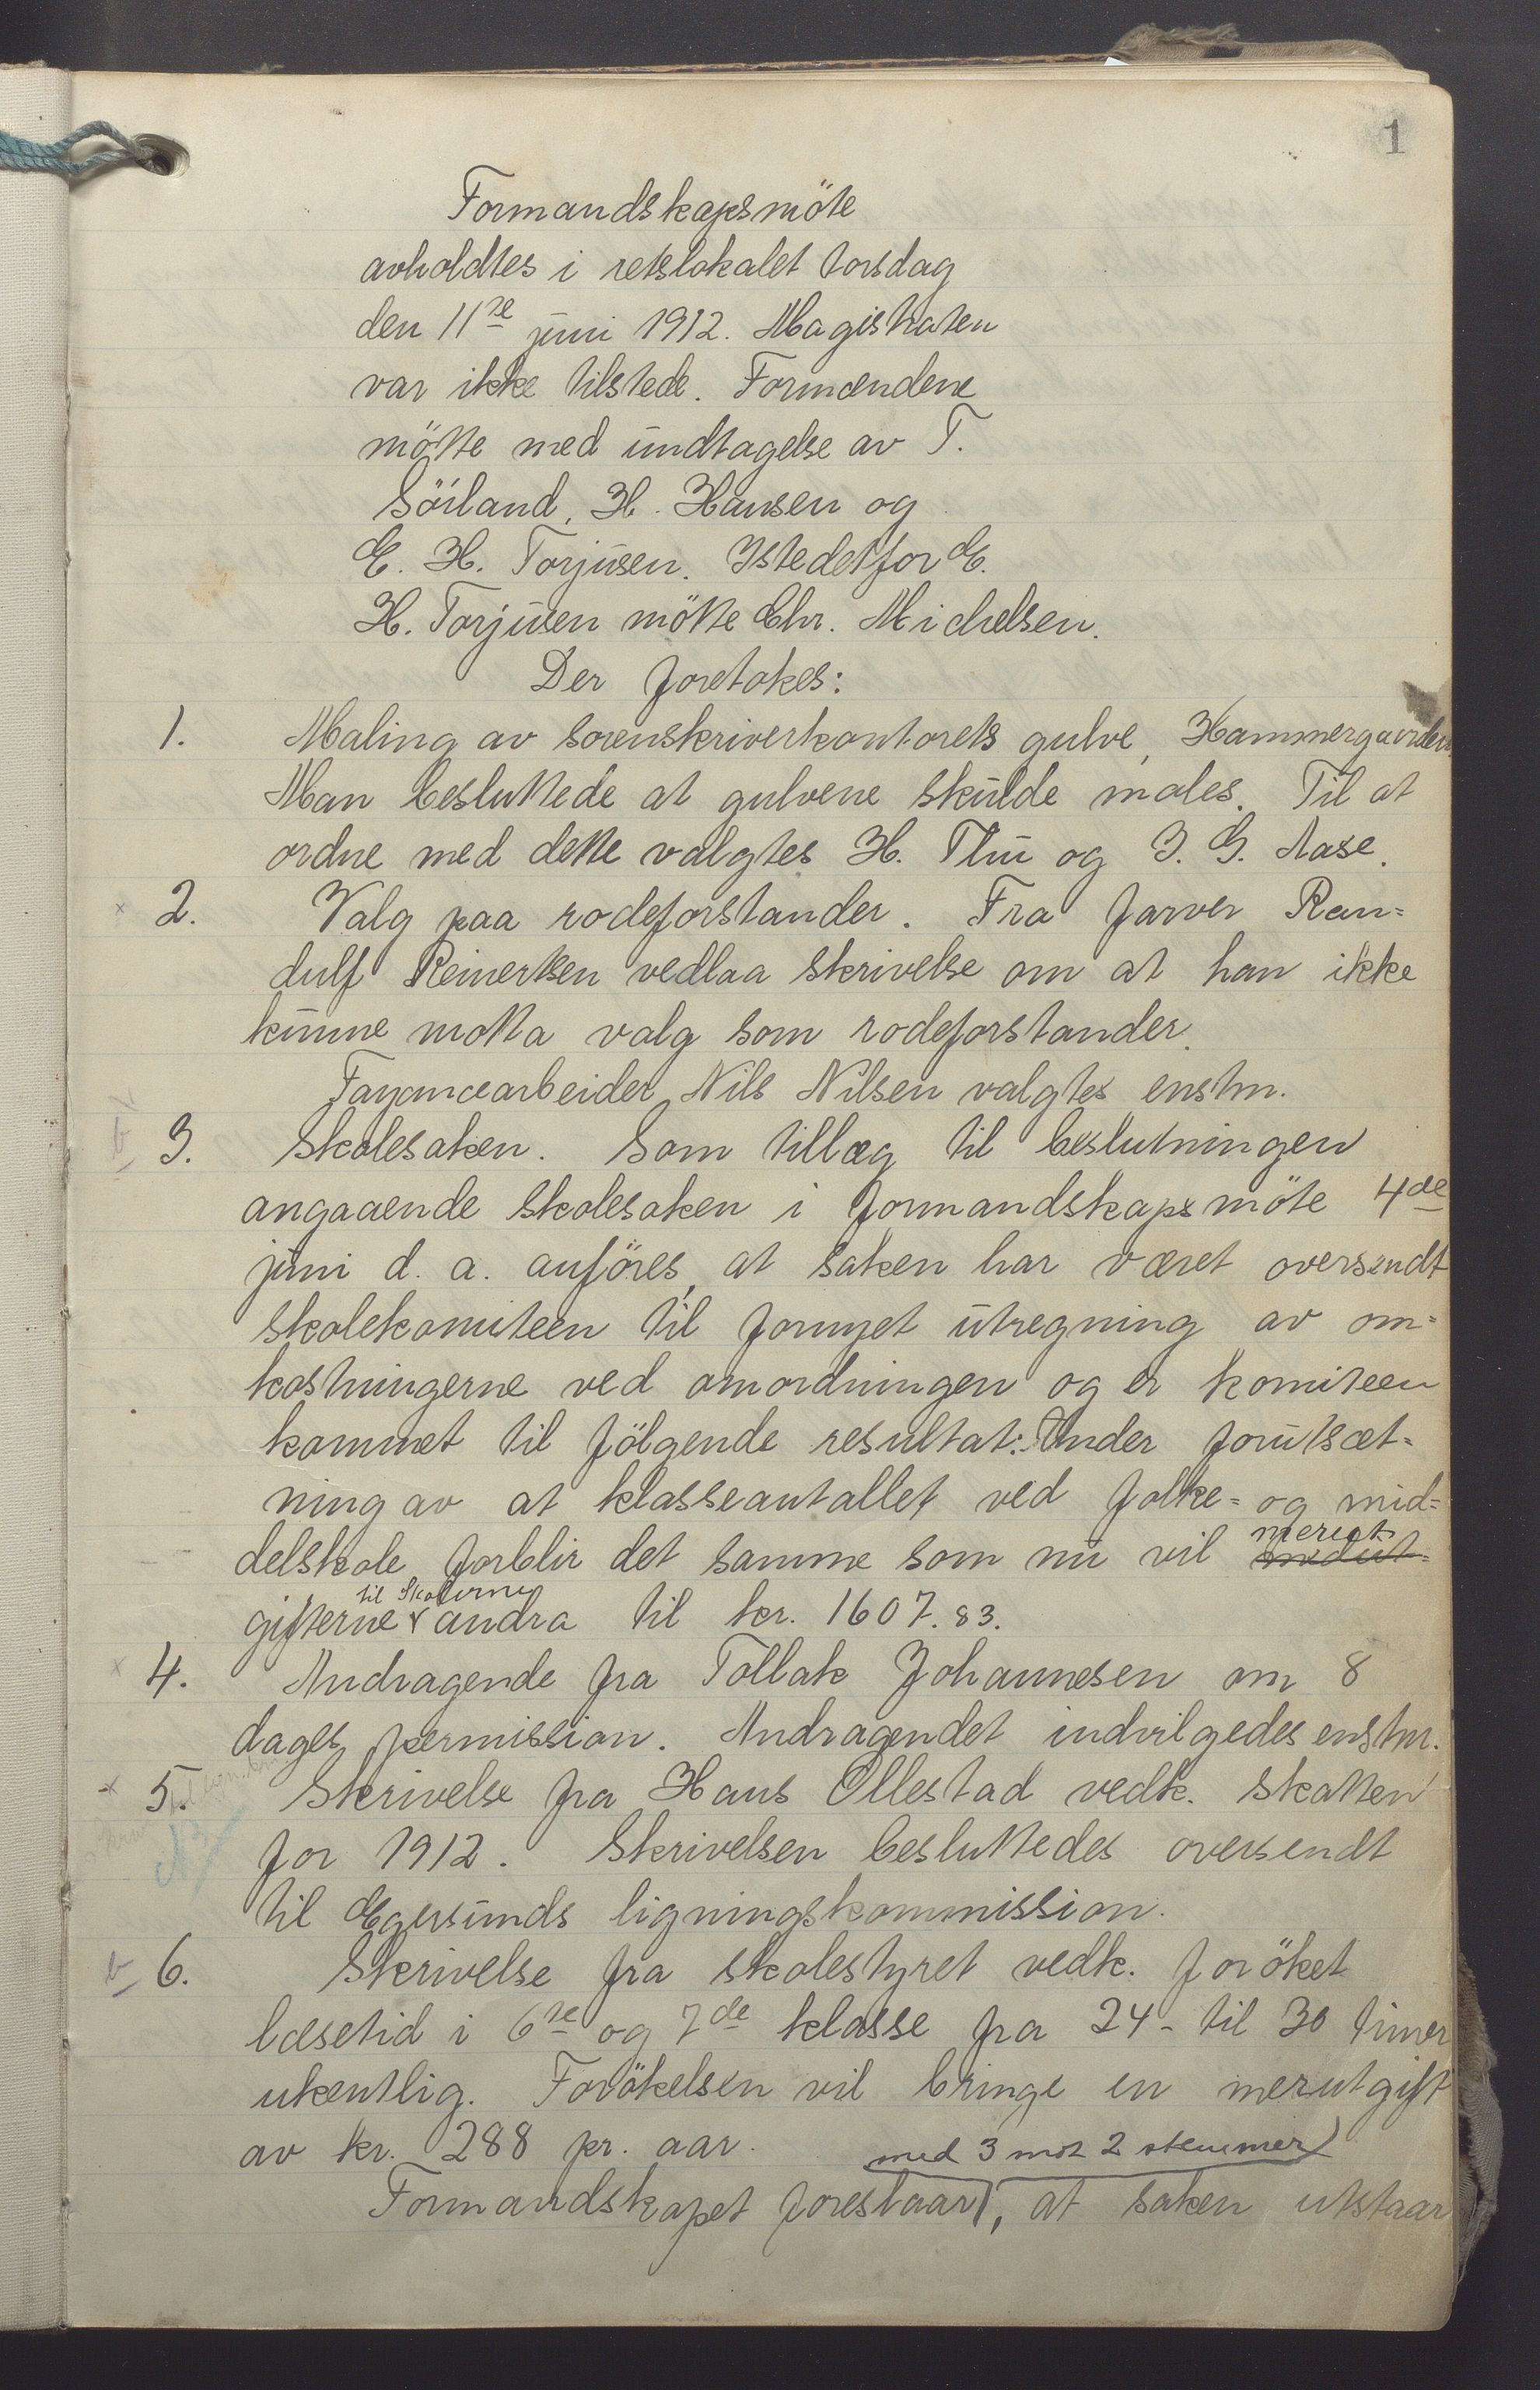 1
Formandskapsmöte
avholdtes i retslokalet torsdag
den 11te juni 1912. Magistraten
var ikke tilstede. Formændene
mötte med undtagelse av T.
Söiland, H. Hansen og
E. H. Torjusen. Istedetfor E.
H. Torjusen mötte Chr. Michelsen.
Der foretokes:
1. Maling av sorenskriverkontorets gulve, Hammergaarden.
Man besluttede at gulvene skulde males. Til at
ordne med dette valgtes H. Thu og I. G. Aase.
2. Valg paa rodeforstander. Fra farver Ran=
dulf Reinertsen vedlaa skrivelse om at han ikke
kunne motta valg som rodeforstander.
Fayancearbeider Nils Nilsen valgtes enstm.
3. Skolesaken. Som tillæg til beslutningen
angaaende skolesaken i formandskapsmöte 4de
juni d. a. anföres, at saken har været oversendt
skolekomiteen til fornyet utregning av om=
kostningerne ved omordningen og er komiteen
kommet til fölgende resultat: Under forutsæt=
ning av at klasseantallet ved folke= og mid=
delskole forblir det samme som nu vil merut=
gifterne til skolerne andra til kr. 1607.83.
4. Andragende fra Tollak Johannesen om 8
dages permission. Andragendet indvilgedes enstm.
5. Skrivelse fra Hans Ollestad vedk. skatten
for 1912. Skrivelsen besluttedes oversendt
til Egersunds ligningskommission.
6. Skrivelse fra skolestyret vedk. foröket
læsetid i 6te og 7de klasse fra 24 - til 30 timer
ukentlig. Forökelsen vil bringe en merutgift
av kr. 288 pr. aar.
med 3 mot 2 stemmer
Formandskapet foreslaar, at saken utstaar